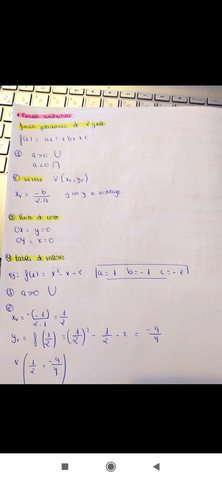 Función cuadrática
función polinómica de 2º grado
f(x) = ax² + bx + c
① a>0 ∪
a<0 ∩
② Vértice V (xᵥ, yᵥ)
xᵥ = -b / 2·a y en y =
③ Punto de corte
OX = y=0
OY = x=0
④ tabla de valores
Ej: f(x) = x² - x - 2 a=1 b=-1 c=-2
① a>0 ∪
②
xᵥ = -(-1) / 2·1 = 1/2
yᵥ = f(1/2) = (1/2)² - 1/2 - 2 = -9/4
V (1/2, -9/4)